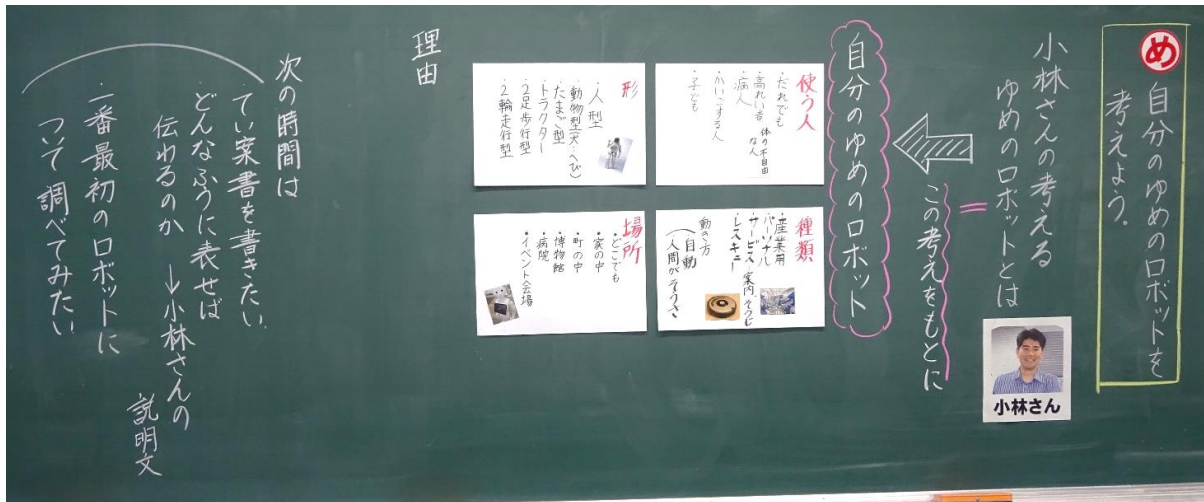 め
自分のゆめのロボットを
考えよう。
小林さんの考える
ゆめのロボットとは
小林さん
＝
この考えをもとに
自分のゆめのロボット
使う人
・だれでも
・高れい者 体の不自由な人
・病人
・かいごする人
・子ども
種類
・産業用
・パーソナル
・サービス 案内 そうじ
・レスキュー
動き方
自動
人間がそうさ
形
・人型
・動物型(犬・へび)
・たまご型
・トラクター
・2足歩行型
・2輪走行型
場所
・どこでも
・家の中
・町の中
・博物館
・病院
・イベント会場
理由
次の時間は
・てい案書を書きたい
どんなふうに表せば
伝わるのか →小林さんの
説明文
・一番最初のロボットに
ついて調べてみたい